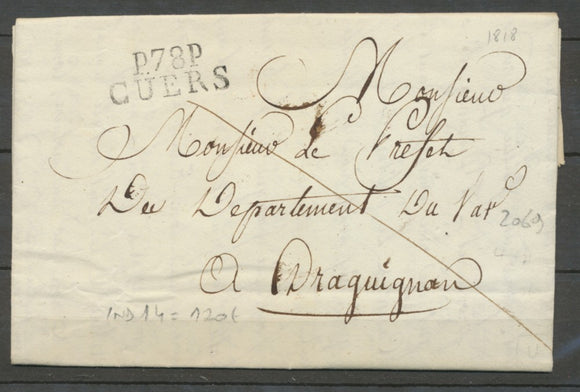 1818
P.78.P
CUERS
Monsieur
Monsieur le Prefet
Du Departement Du Var
2069
A Draguignan
IND 14 = 120€